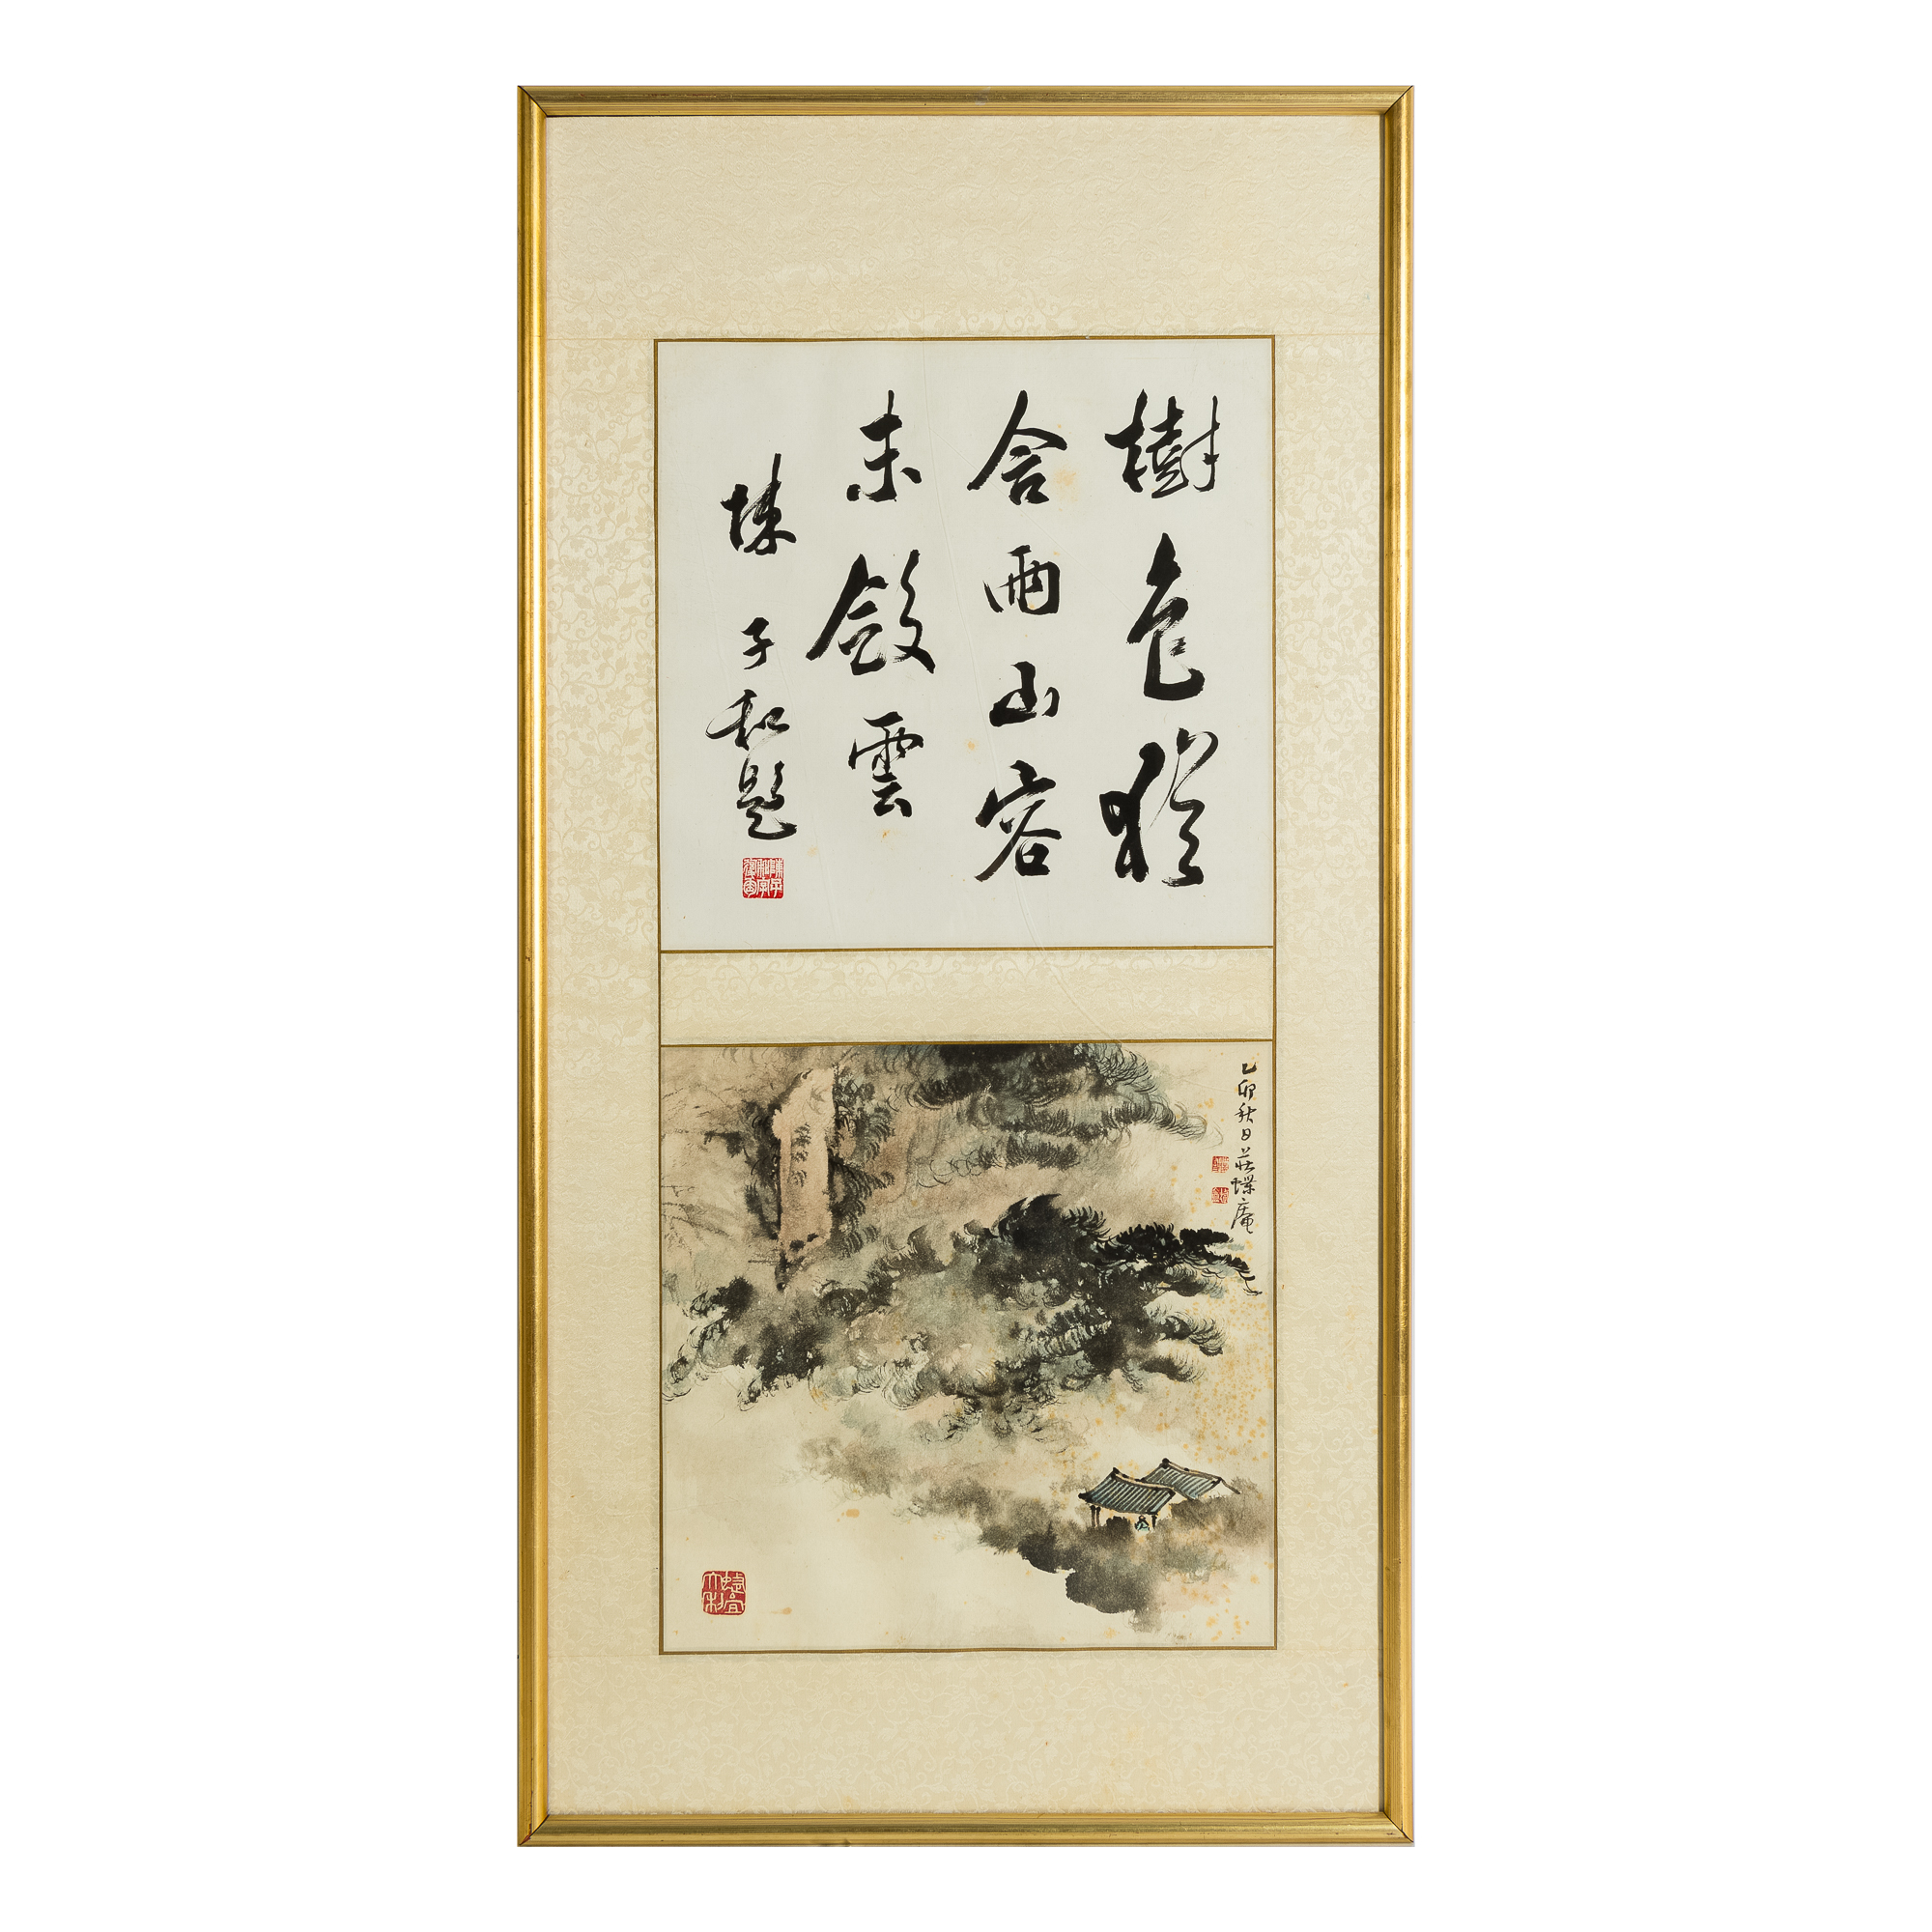 樹色猶
含雨山容
未斂雲
陳子和題
乙卯秋日莊蝶庵